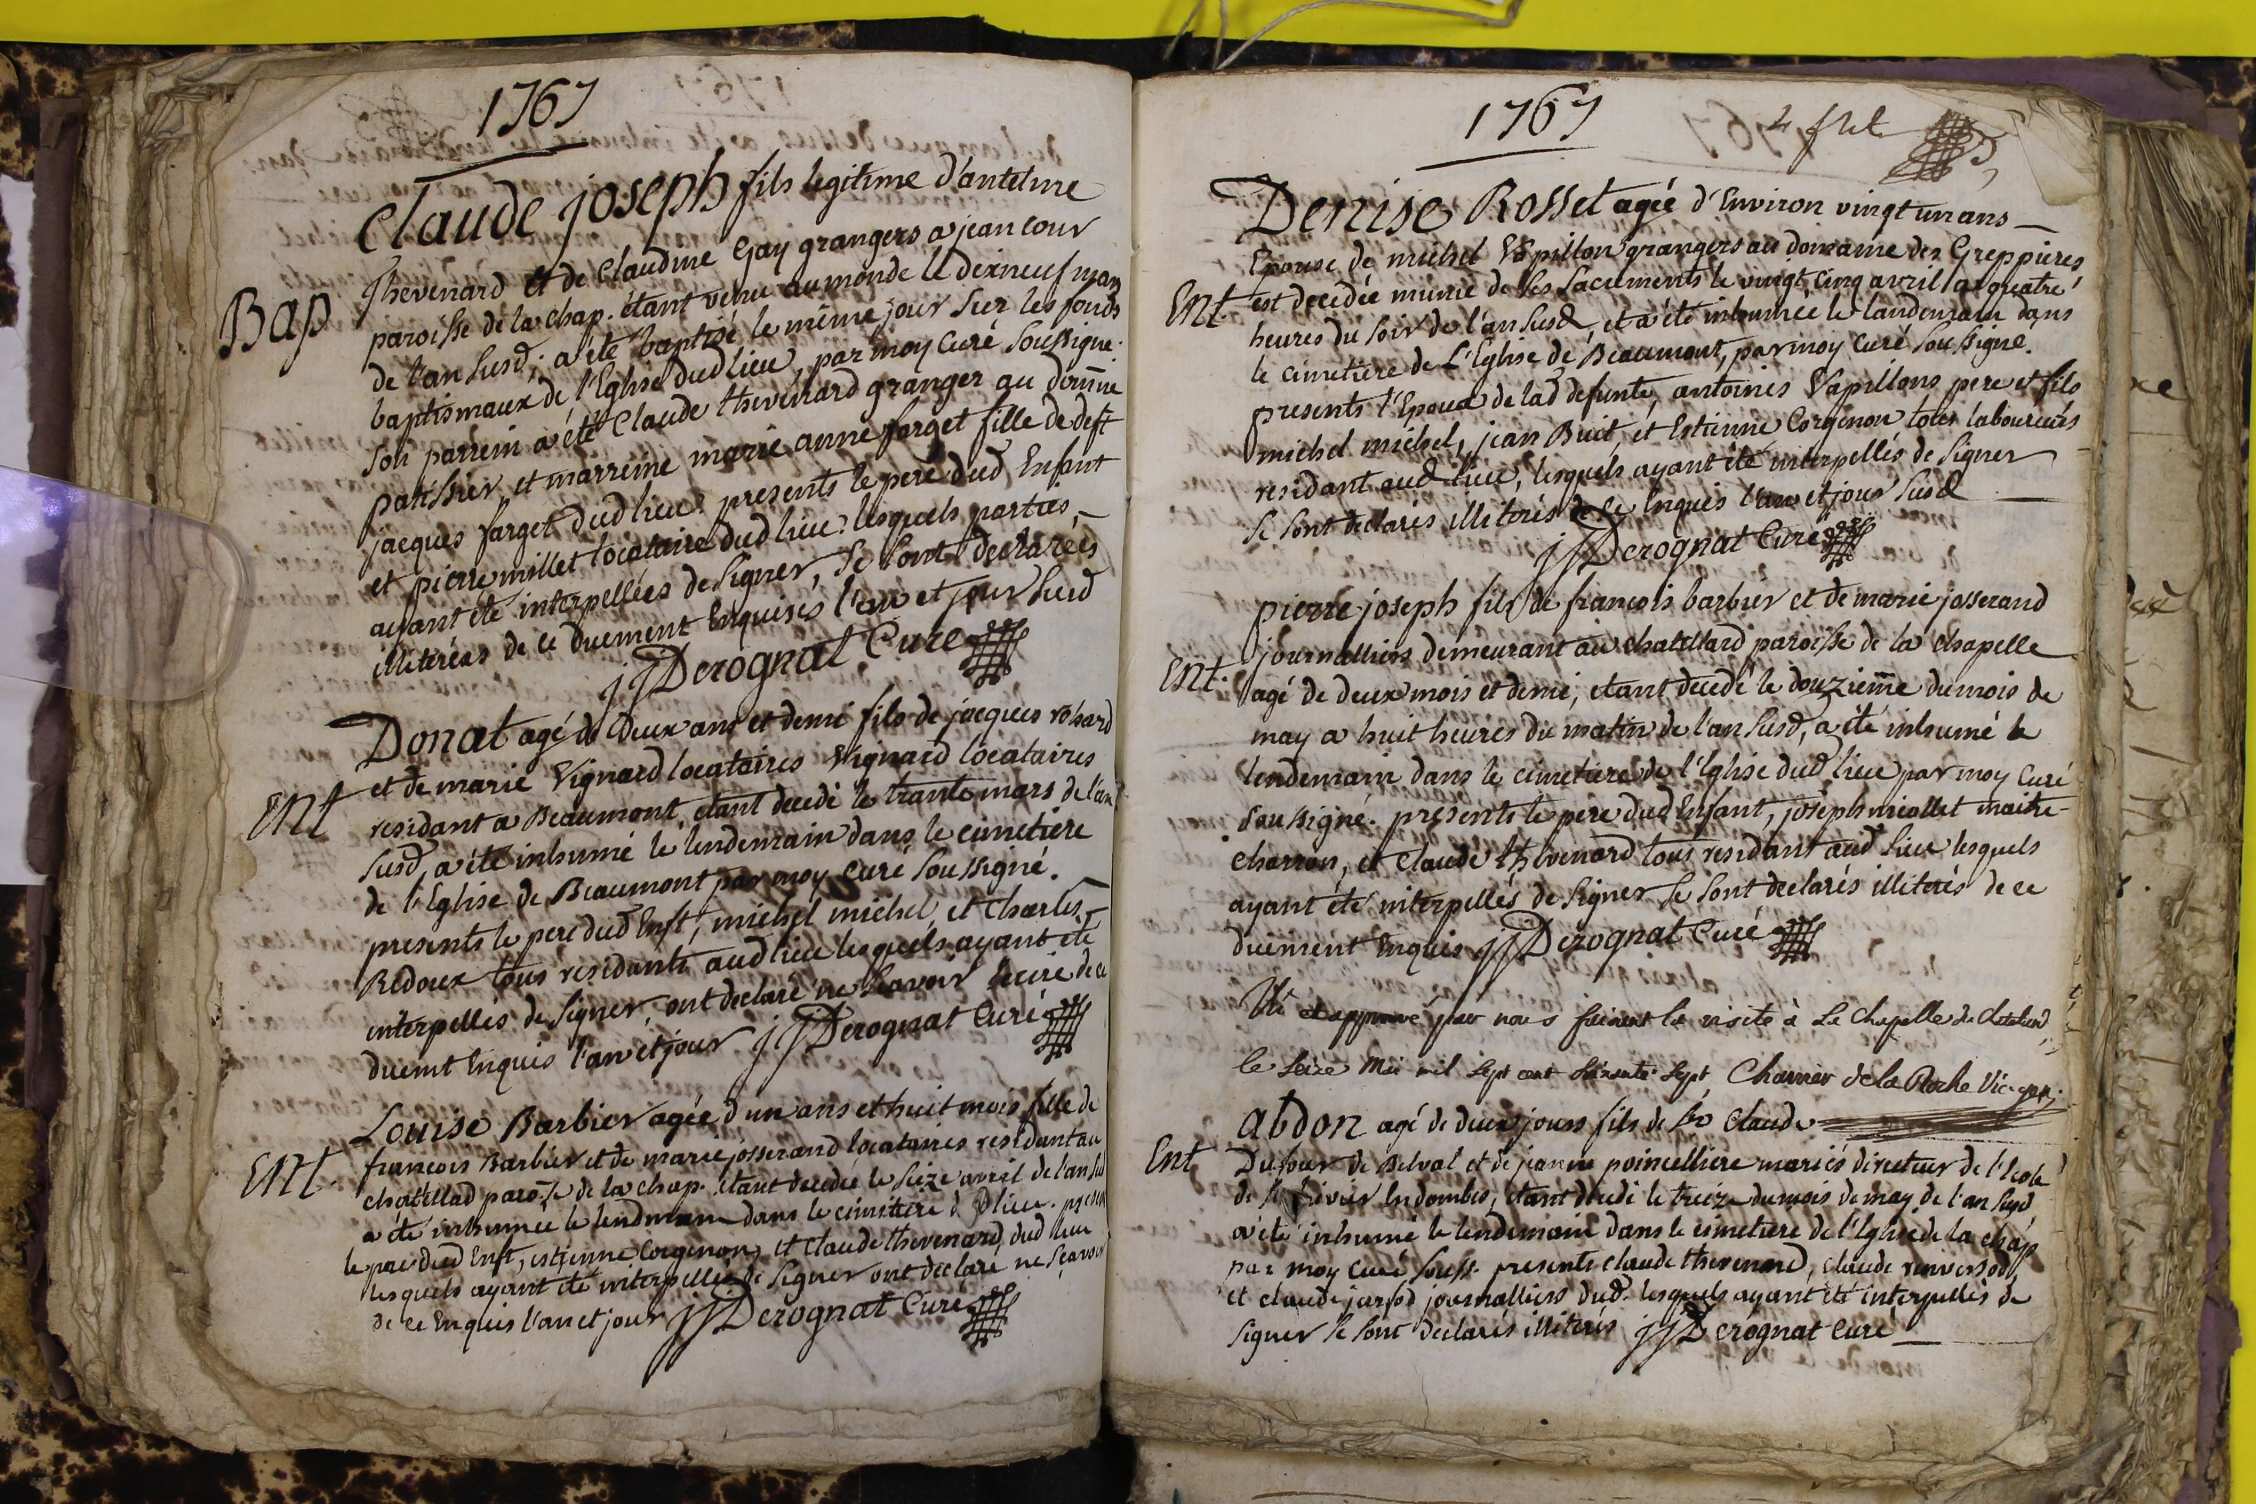 1767
Claude joseph fils legitime d'antelme
Thevenard et de Claudine Gay grangers a jean cour
Bap
paroisse de la chap. étant venu au monde le dixneuf mars
de l'an susd, a été baptisé le même jour sur les fonds
baptismaux de l'Eglise dud lieu, par moy Curé soussigné.
son parrein a été Claude thevenard granger au domne
patissier et marreine marie anne farget fille de deft
jacques farget dud lieu. presents le pere dud Enfant
et pierre millet locataire dud lieu. lesquels parties
ayant été interpellées de signer, se sont declarées
illiterées de ce duement Enquises l'an et jour susd
jjDerognat Curé
Donat agé de deux ans et demi fils de jacques rohard
et de marie Vignard locataires Vignard locataires
Ent
residant a Beaumont, etant decedé le trante mars de l'an
susd, a été inhumé le lendemain dans le cimetiere
de l'Eglise de Beaumont par moy Curé soussigné.
presents le pere dud Enft, michel michel et Charles
Redoux tous residants aud lieu lesquels ayant été
interpellés de signer, ont declaré ne sçavoir écrire de ce
duemt Enquis l'an et jour jjDerognat Curé
Louise Barbier agée d'un ans et huit mois fille de
francois Barbier et de marie josserand locataires residant au
Ent.
chatellad paroisse de la chap. etant decedée le seize avril de l'an susd
a été inhumée le lendmain dans le cimitiere d lieu. presen
le pere dud Enft, estienne Corgenon, et Claude thevenard, dud lieu
lesquels ayant été interpellés de signer ont declaré ne sçavoir
de ce Enquis l'an et jour jjDerognat Curé
1767
Denise Rosset agée d'Environ vingt un ans
Epouse de michel Vapillon grangers au domaine des Greppieres
Ent.
est decedée munie de ses sacrements le vingt cinq avril a quatre
heures du soir de l'an susd, et a été inhumée le landemain dans
le cimetiere de L'Eglise de Beaumont, par moy Curé soussigné.
presents l'Epoux de lad defunte, antoines Vapillons pere et fils
michel michel, jean Buit, et Estienne Corgenon tous laboureurs
residant aud lieu, lesquels ayant été interpellés de signer
se sont declarés illiterés de ce Enquis l'an et jour susd
jjDerognat Curé
pierre joseph fils de francois barbier et de marie josserand
journalliers demeurant au chatellard paroisse de la chapelle
Ent.
agé de deux mois et demi, etant decedé le douzieme du mois de
may a huit heures du matin de l'an susd, a été inhumé le
lendemain dans le cimetiere de l'Eglise dud lieu par moy Curé
soussigné. presents le pere dud Enfant, joseph miollet maitre
charron, et Claude thevenard tous residant aud lieu lesquels
ayant été interpellés de signer se sont declarés illiterés de ce
duement Enquis jjDerognat Curé
Vû et approuvé par nous faisant la visite à La Chapelle du Chatelard
le seize Mai mil sept cent soixante sept Charrier de la Roche Vic. gen.
abdon agé de deux jours fils de Sr Claude
Ent
Dufour de Belval et de jeanne poincelliere mariés directeur de l'école
de St Trivier En dombes, etant decedé le treize du mois de may de l'an susd
a été inhumé le lendemain dans le cimetiere de l'Eglise de la chap
par moy Curé souss. presents claude thevenard, claude
et claude jarsod journalliers dud. lesquels ayant été interpellés de
signer se sont declarés illiterés jjDerognat Curé